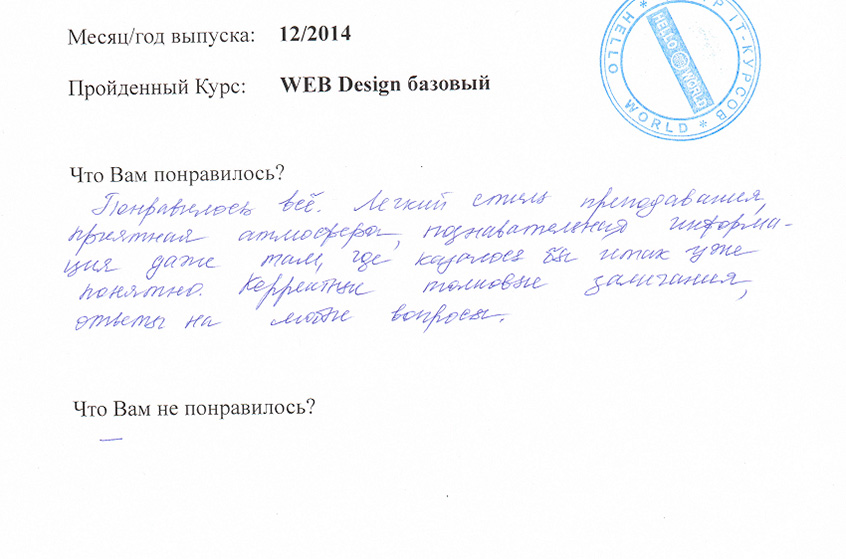 Месяц/год выпуска: 12/2014
Пройденный Курс: WEB Design базовый
Р IT-КУРСОВ * HELLO WORLD *
HELLO WORLD
Что Вам понравилось?
Понравилось всё. Легкий стиль преподавания,
приятная атмосфера, познавательная информа-
ция даже там, где казалось бы итак уже
понятно. Корректные толковые замечания,
ответы на любые вопросы.
Что Вам не понравилось?
—